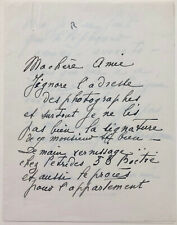 Ma chère Amie
J'ignore l'adresse
des photographes
et surtout je ne lis
pas bien la signature
de ce monsieur
Demain vernissage
chez Petrides, 58
et aussi le procès
pour l'appartement